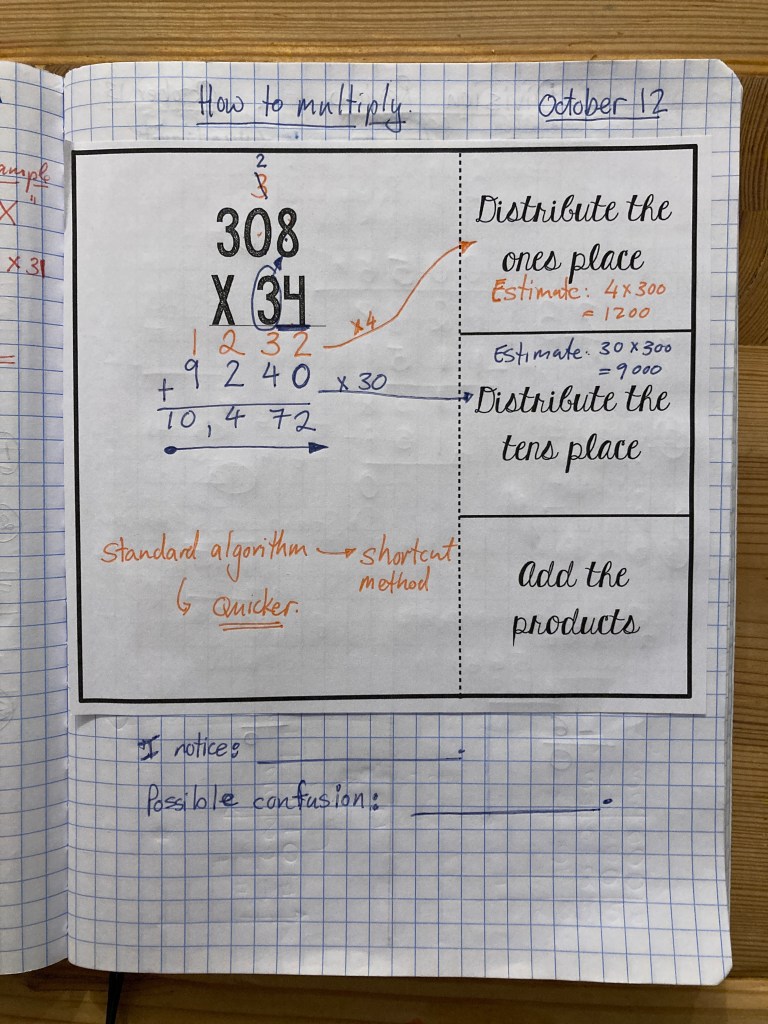 How to multiply.
October 12
ample
X "
x 31
=
2
3
308
X 34
1 2 3 2
x4
+ 9 2 4 0
x 30
10,4 72
Standard algorithm → shortcut
method
↳ Quicker.
Distribute the
ones place
Estimate: 4 x 300
= 1200
Estimate: 30 x 300
= 9000
Distribute the
tens place
Add the
products
I notice:
Possible confusion: